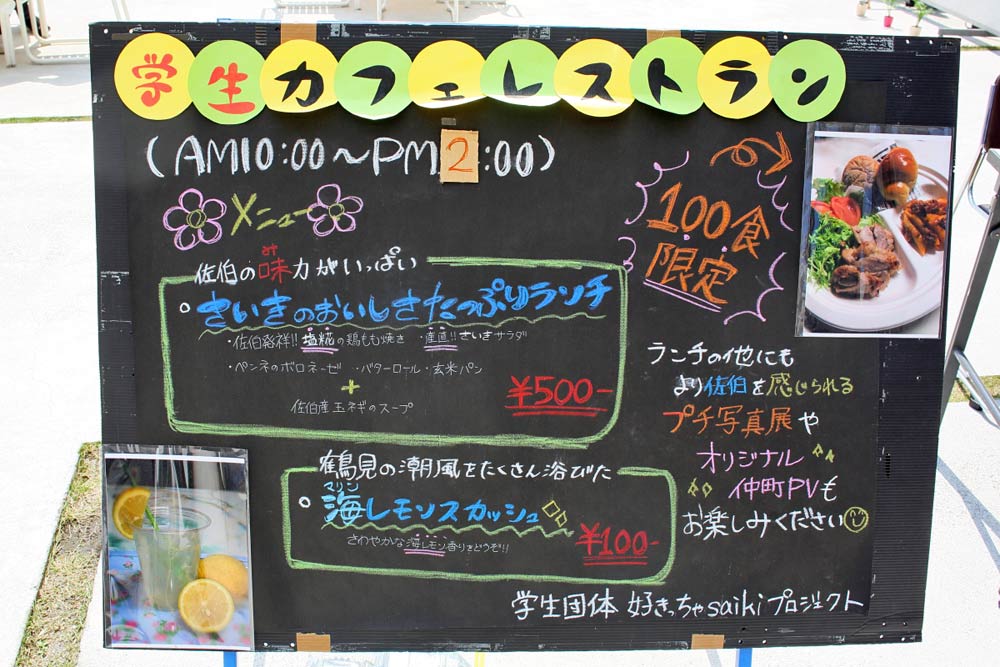 学生カフェレストラン
(AM10:00～PM2:00)
メニュー
100食
限定
佐伯の味力がいっぱい
み
・さいきのおいしさたっぷりランチ
・佐伯発祥!!塩糀の鶏もも焼き ・産直!!さいきサラダ
・ペンネのボロネーゼ ・バターロール・玄米パン
+
佐伯産玉ネギのスープ
¥500-
ランチの他にも
より佐伯を感じられる
プチ写真展や
オリジナル
仲町PVも
お楽しみください
鶴見の潮風をたくさん浴びた
マリン
・海レモンスカッシュ
さわやかな海レモン香りをどうぞ!!
¥100-
学生団体 好きっちゃsaikiプロジェクト